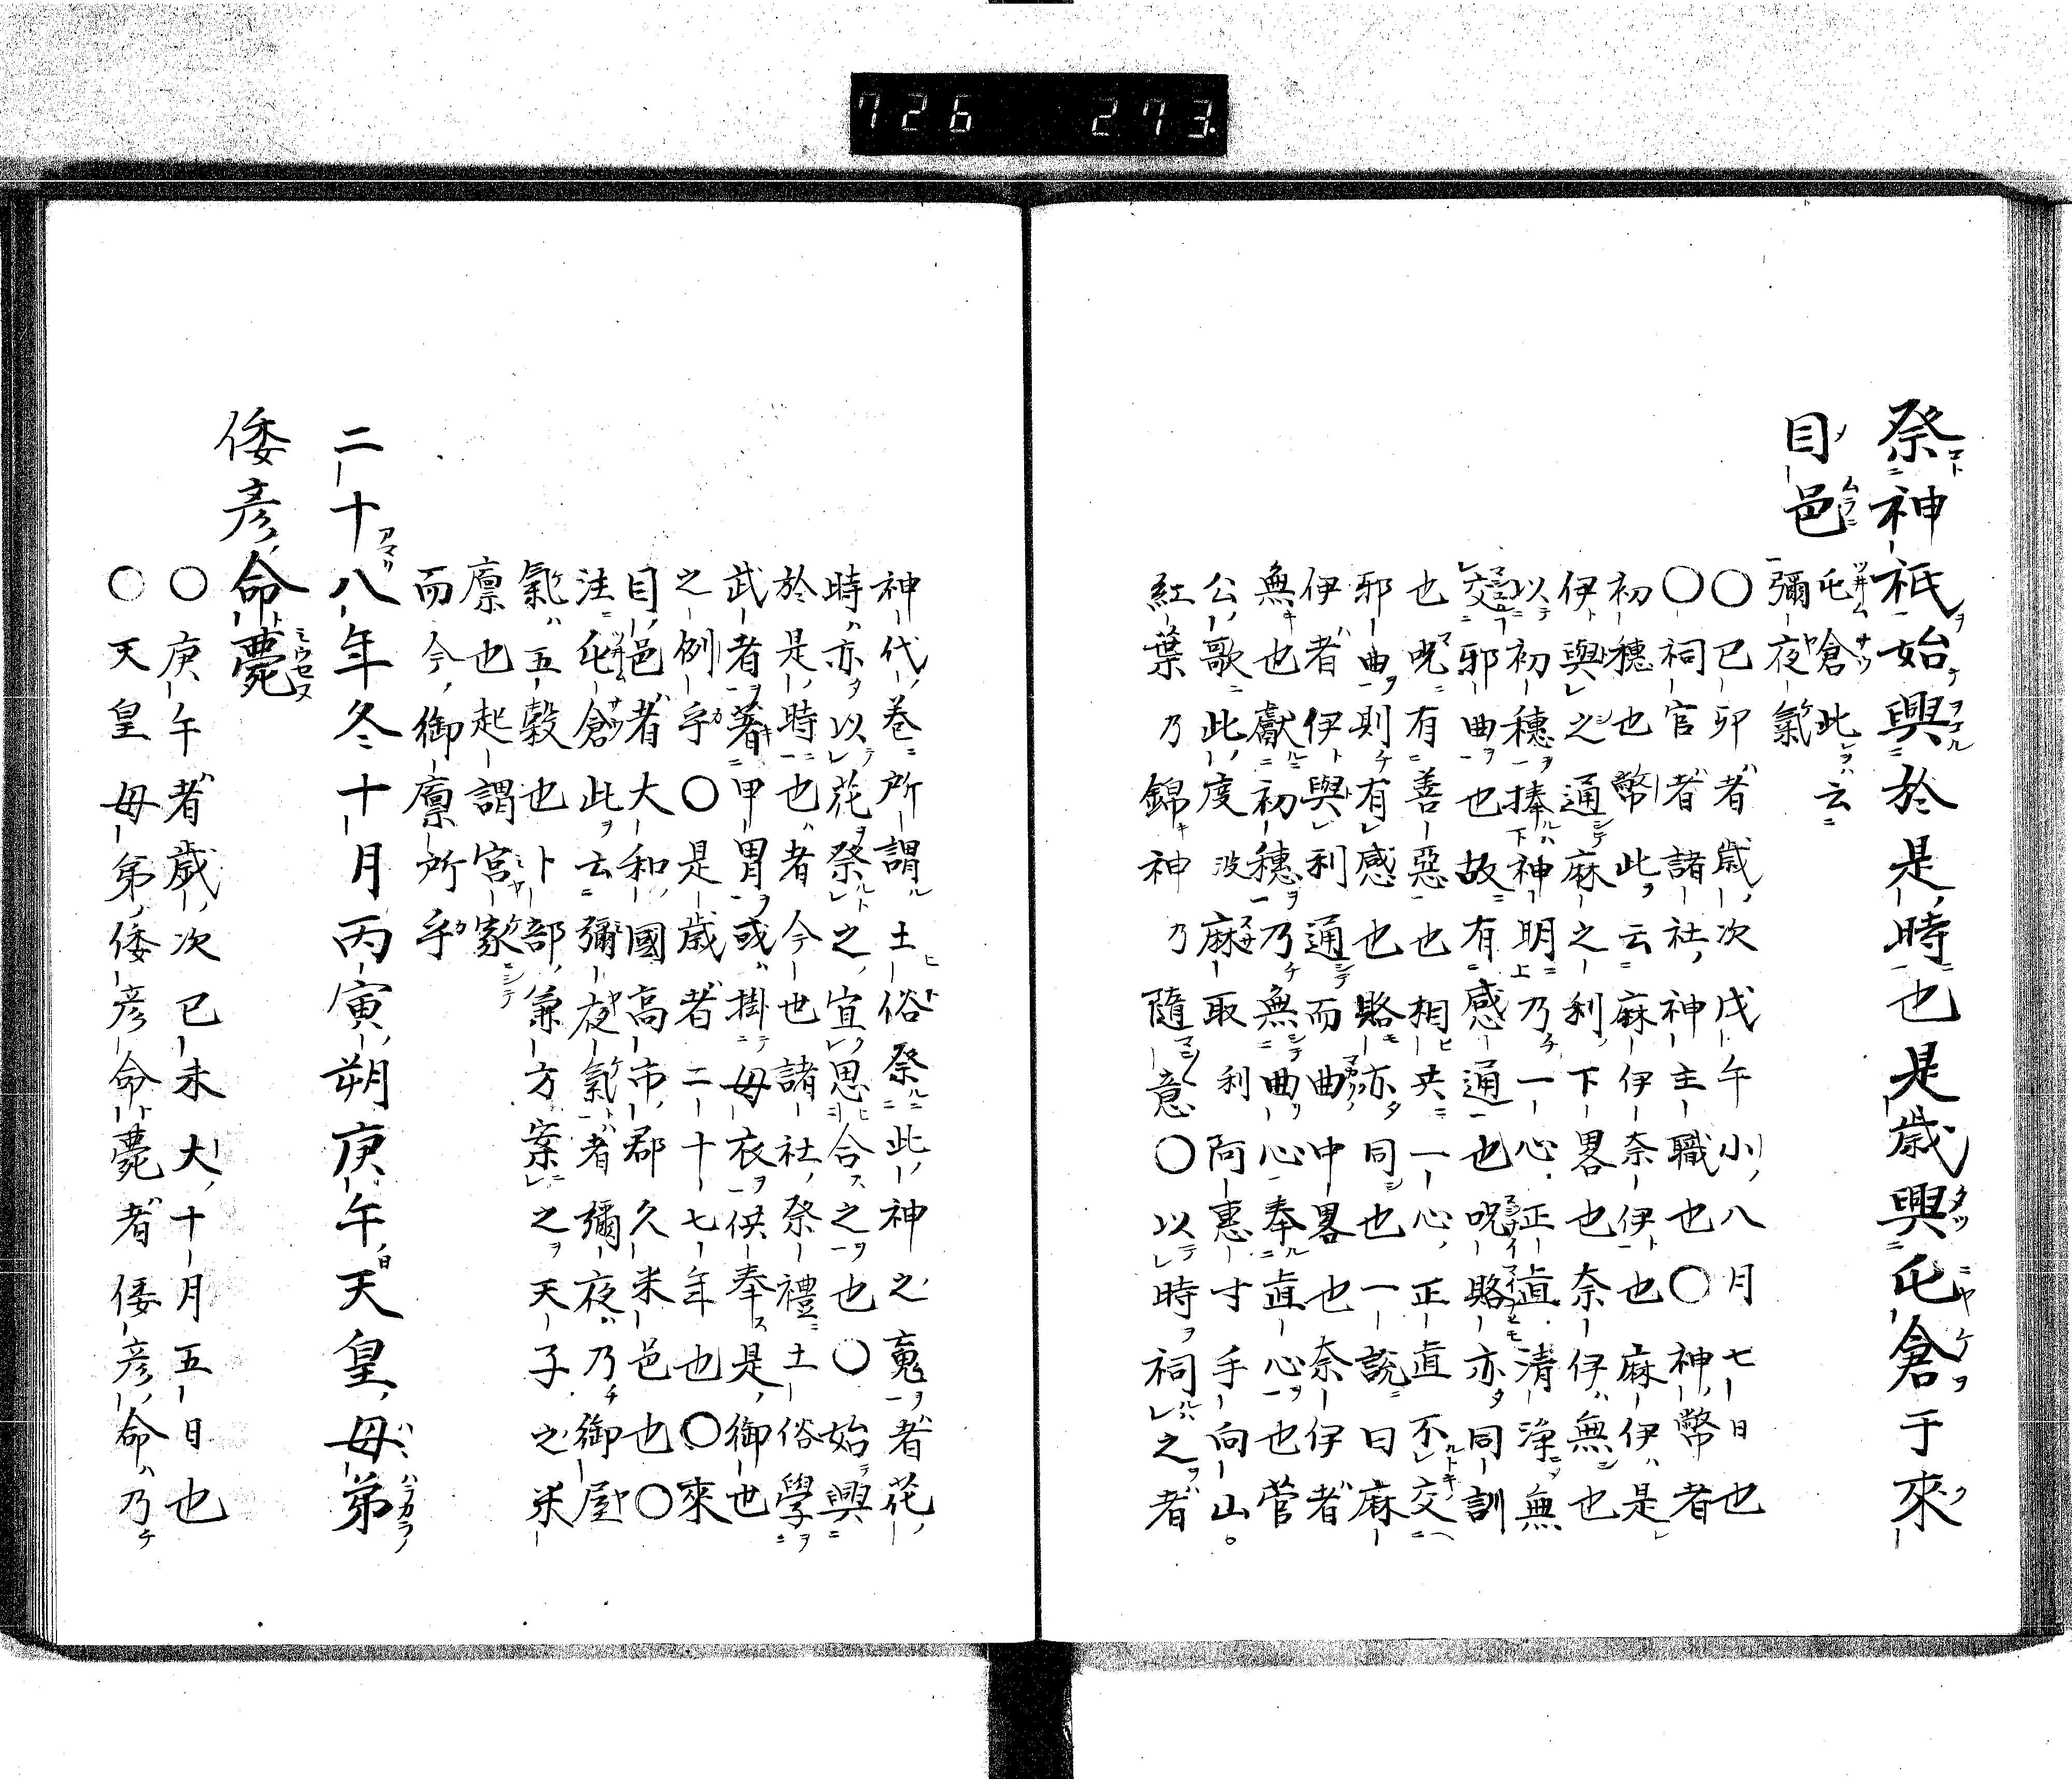 726 273
祭神祇始興於是時也是歲興屯倉于來
目邑
屯倉此云
彌夜氣
○己卯者歲次戊午小八月七日也
○祠官者諸社神主職也○神幣者
初穗也幣此云麻伊奈伊也麻伊是
伊與之通麻之利下畧也奈伊無也
以初穗捧神明乃一心正直清淨無
交邪曲也故有感通也呪賂亦同訓
也呪有善惡也相共一心正直不交
邪曲則有感也賂亦同也一說曰麻
伊者伊與利通而曲中畧也奈伊者
無也獻初穗乃無曲心奉直心也菅
公歌此度波麻取利阿惠寸手向山
紅葉乃錦神乃隨意○以時祠之者
神代卷所謂土俗祭此神之䰟者花
時亦以花祭之宜思合之也○始興
於是時也者今也諸社祭禮土俗學
武者著甲冑或掛母衣供奉是御世
之例乎○是歲者二十七年也○來
目邑者大和國高市郡久米邑也○
注屯倉此云彌夜氣者彌夜乃御屋
氣五穀也卜部兼方案之天子之米
廪也起謂宮家
而今御廪所乎
二十八年冬十月丙寅朔庚午天皇母弟
倭彥命薨
○庚午者歲次己未大十月五日也
○天皇母弟倭彥命薨者倭彥命乃